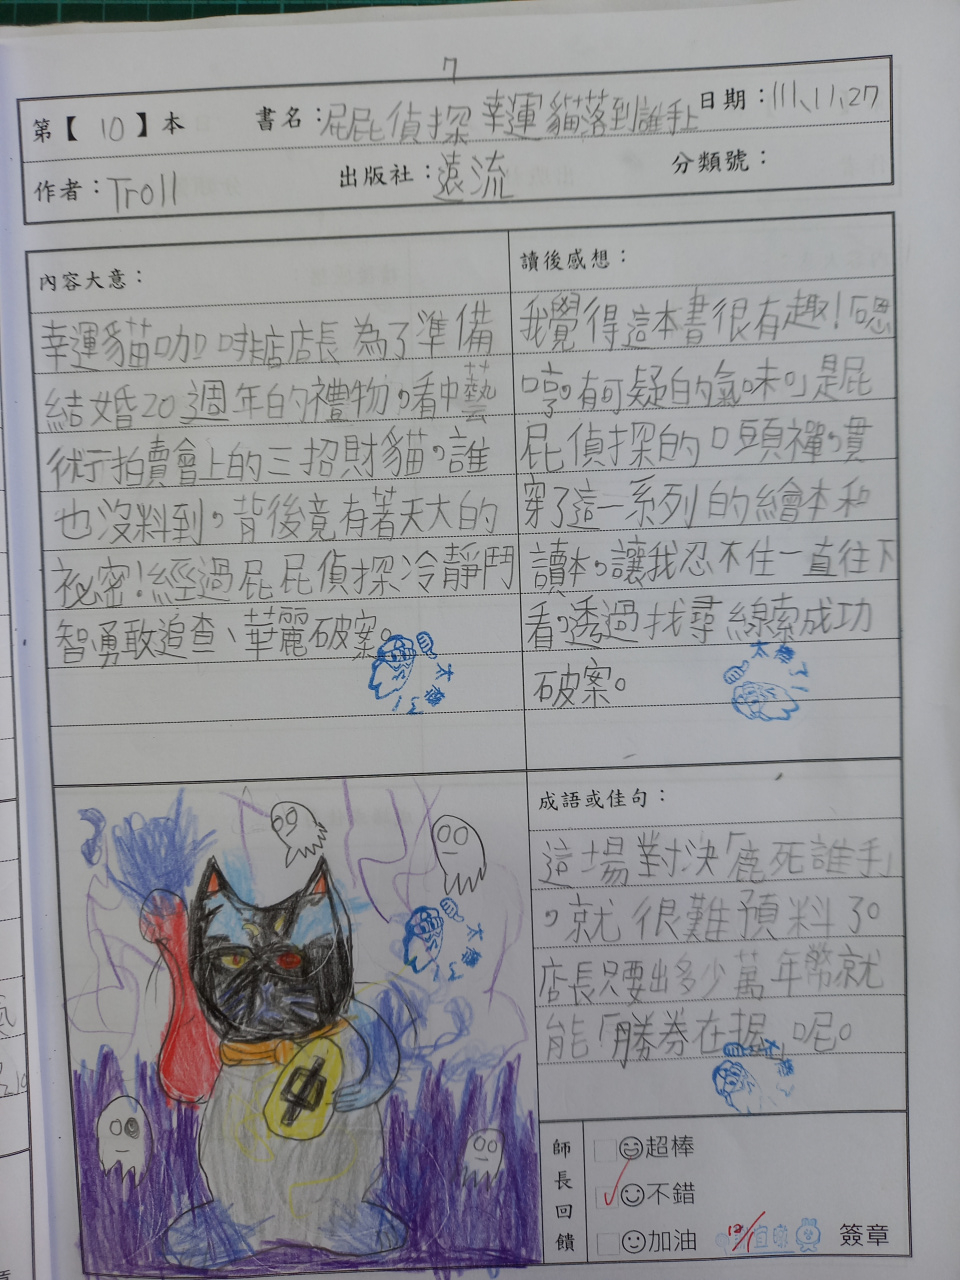 7
第【 10 】本 書名：屁屁偵探 幸運貓落到誰手上 日期：111、11、27
作者：Troll 出版社：遠流 分類號：
內容大意：
幸運貓咖啡店店長為了準備
結婚20週年的禮物，看中藝
術品拍賣會上的三招財貓，誰
也沒料到，背後竟有著天大的
祕密！經過屁屁偵探冷靜鬥
智勇敢追查、華麗破案。
太棒了！
讀後感想：
我覺得這本書很有趣！「嗯
哼。有可疑的氣味」是屁
屁偵探的口頭禪，貫
穿了這一系列的繪本和
讀本，讓我忍不住一直往下
看，透過找尋線索成功
破案。
太棒了！
太棒了！
成語或佳句：
這場對決「鹿死誰手」
，就很難預料了。
店長只要出多少萬年幣就
能「勝券在握」呢。
太棒
師長回饋
超棒
不錯
加油
12/1
簽章